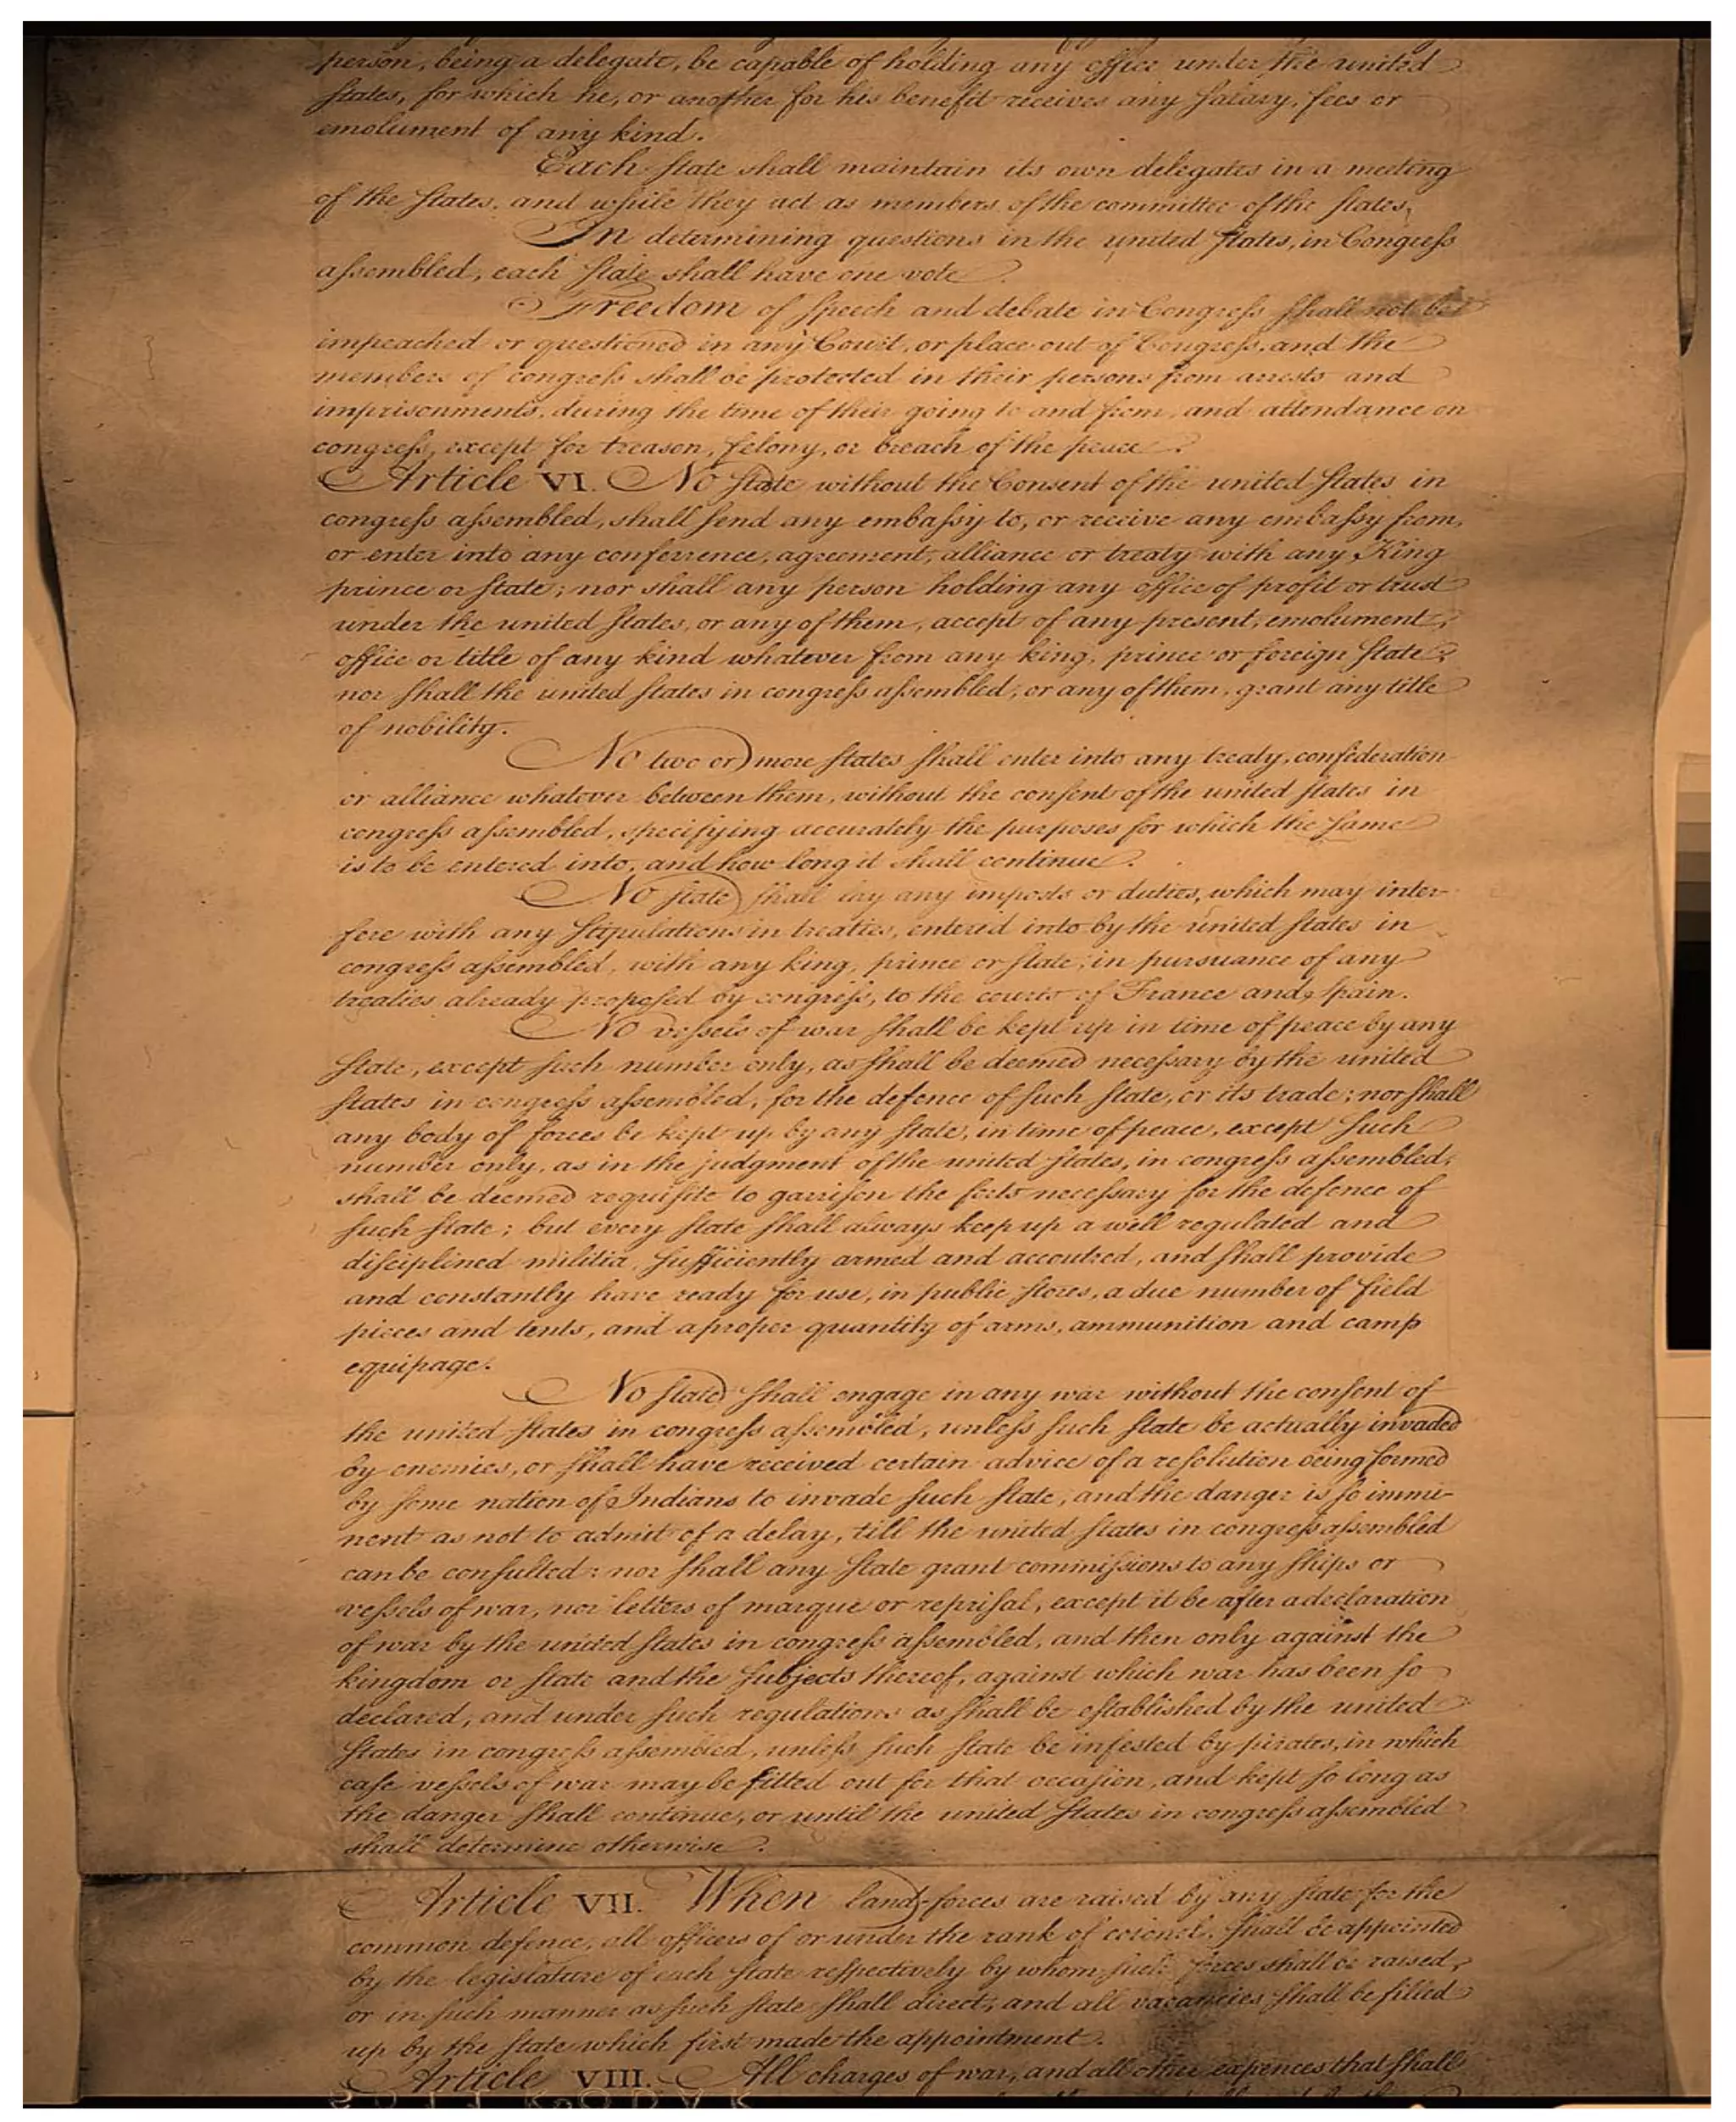 person, being a delegate, be capable of holding any office under the united
States, for which he, or another for his benefit receives any salary, fees or
emolument of any kind.
Each State shall maintain its own delegates in a meeting
of the States, and while they act as members of the committee of the States.
In determining questions in the united States, in Congress
assembled, each State shall have one vote.
Freedom of speech and debate in Congress shall not be
impeached or questioned in any Court, or place out of Congress, and the
members of congress shall be protected in their persons from arrests and
imprisonments, during the time of their going to and from, and attendance on
congress, except for treason, felony, or breach of the peace.
Article VI. No State without the Consent of the united States in
congress assembled, shall send any embassy to, or receive any embassy from,
or enter into any conferrence, agreement, alliance or treaty with any King
prince or State; nor shall any person holding any office of profit or trust
under the united States, or any of them, accept of any present, emolument,
office or title of any kind whatever from any king, prince or foreign State;
nor shall the united States in congress assembled, or any of them, grant any title
of nobility.
No two or more States shall enter into any treaty, confederation
or alliance whatever between them, without the consent of the united States in
congress assembled, specifying accurately the purposes for which the same
is to be entered into, and how long it shall continue.
No State shall lay any imposts or duties, which may inter-
fere with any stipulations in treaties, entered into by the united States in
congress assembled, with any king, prince or State, in pursuance of any
treaties already proposed by congress, to the courts of France and Spain.
No vessels of war shall be kept up in time of peace by any
State, except such number only, as shall be deemed necessary by the united
States in congress assembled, for the defence of such State, or its trade; nor shall
any body of forces be kept up by any State, in time of peace, except such
number only, as in the judgment of the united States, in congress assembled,
shall be deemed requisite to garrison the forts necessary for the defence of
such State; but every State shall always keep up a well regulated and
disciplined militia, sufficiently armed and accoutred, and shall provide
and constantly have ready for use, in public stores, a due number of field
pieces and tents, and a proper quantity of arms, ammunition and camp
equipage.
No State shall engage in any war without the consent of
the united States in congress assembled, unless such State be actually invaded
by enemies, or shall have received certain advice of a resolution being formed
by some nation of Indians to invade such State, and the danger is so immi-
nent as not to admit of a delay, till the united States in congress assembled
can be consulted: nor shall any State grant commissions to any ships or
vessels of war, nor letters of marque or reprisal, except it be after a declaration
of war by the united States in congress assembled, and then only against the
kingdom or State and the subjects thereof, against which war has been so
declared, and under such regulations as shall be established by the united
States in congress assembled, unless such State be infested by pirates, in which
case vessels of war may be fitted out for that occasion, and kept so long as
the danger shall continue, or until the united States in congress assembled
shall determine otherwise.
Article VII. When land-forces are raised by any State for the
common defence, all officers of or under the rank of colonel, shall be appointed
by the legislature of each State respectively by whom such forces shall be raised,
or in such manner as such State shall direct, and all vacancies shall be filled
up by the State which first made the appointment.
Article VIII. All charges of war, and all other expences that shall